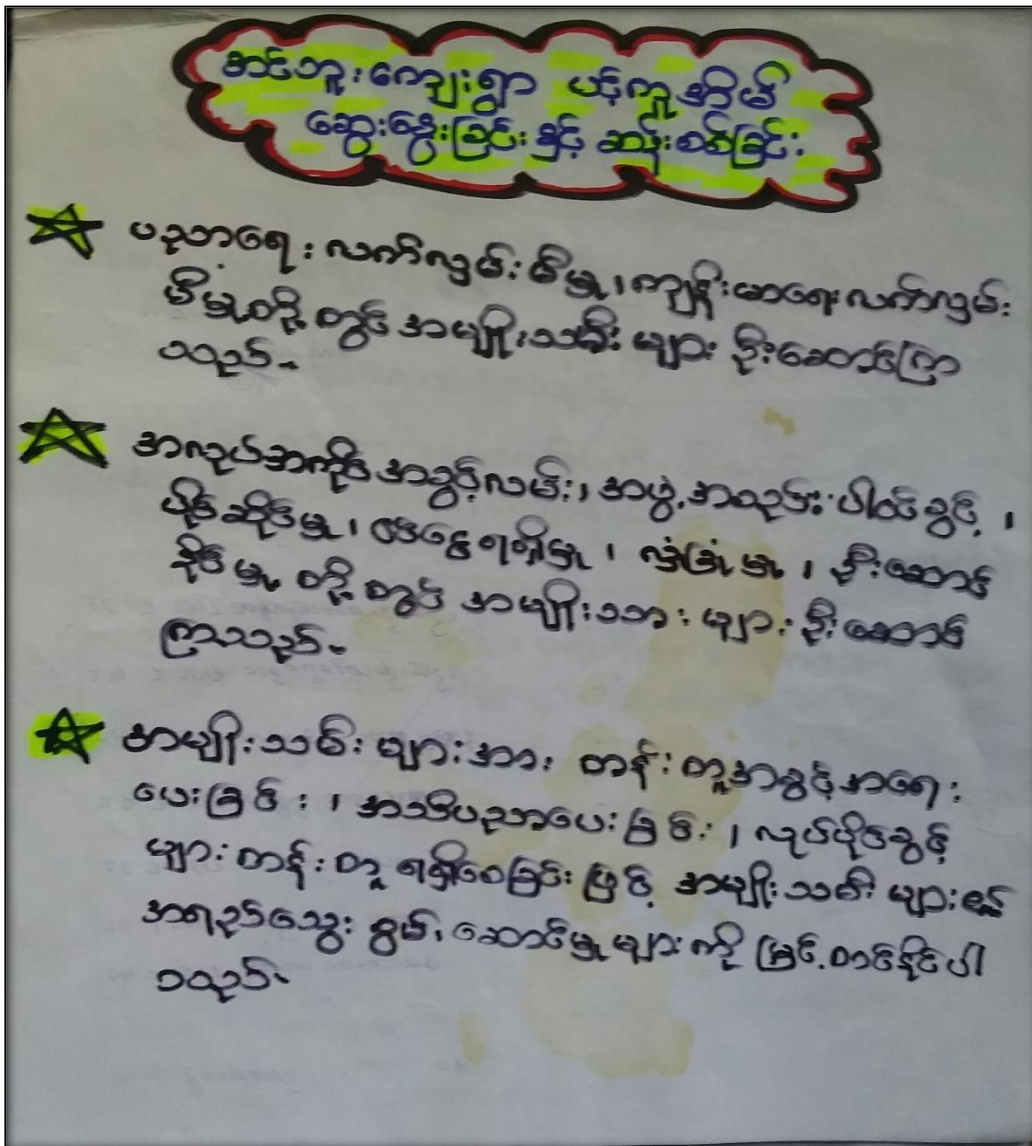 အင်ဘူးကျေးရွာ ပင့်ကူအိမ်
ဆွေးနွေးခြင်းနှင့် ဆန်းစစ်ခြင်း
ပညာရေးလက်လှမ်းမီမှု၊ ကျန်းမာရေးလက်လှမ်း
မီမှုတို့တွင် အမျိုးသမီးများ ဦးဆောင်ကြ
သည်။
အလုပ်အကိုင်အခွင့်လမ်း၊ အဖွဲ့အစည်းပါဝင်ခွင့်၊
ပိုင်ဆိုင်မှု၊ ငွေရရှိမှု၊ လုံခြုံမှု၊ ဦးဆောင်
နိုင်မှုတို့တွင် အမျိုးသားများ ဦးဆောင်
ကြသည်။
အမျိုးသမီးများအား တန်းတူအခွင့်အရေး
ပေးခြင်း၊ အသိပညာပေးခြင်း၊ လုပ်ပိုင်ခွင့်
များ တန်းတူရရှိစေခြင်းဖြင့် အမျိုးသမီးများ၏
အရည်သွေး စွမ်းဆောင်မှုများကို မြှင့်တင်နိုင်ပါ
သည်။